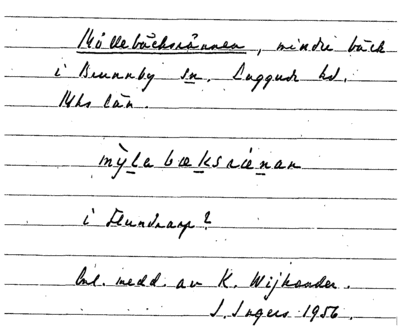 Möllebäcksrännen, mindre bäck
i Brunnby sn. Luggude hd.
Mhs län.
mỳlabæksrienan
i Flundrarp?
Enl. medd. av K. Wijkander.
I. Ingers 1956.